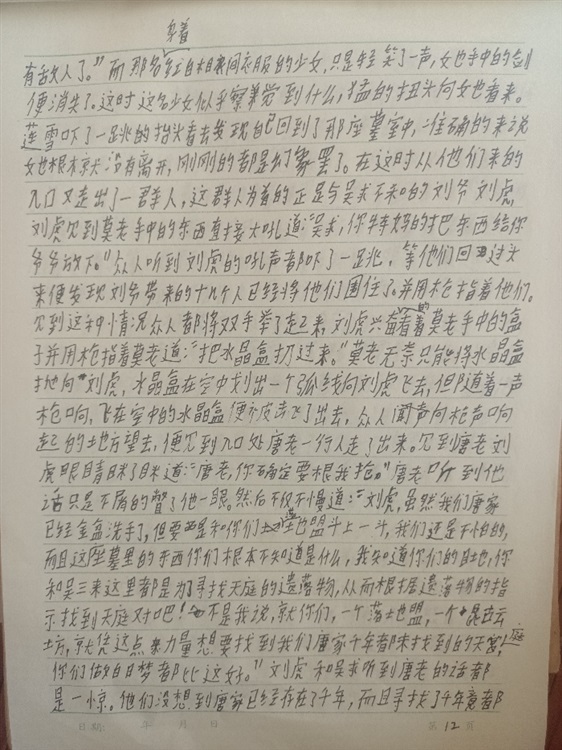 身着
有敌人了。”而那名红白相间衣服的少女，只是轻笑了一声，女也手中的剑
便消失了。这时这名少女似乎察觉到什么，猛的扭头向女也看来。
莲雪吓了一跳的抬头看去发现自己回到了那座墓室中，准确的来说
女也根本就没有离开，刚刚的都是幻象罢了。在这时从他们来的
入口又走出了一群人，这群人为首的正是与吴求不和的刘爷刘虎
刘虎见到莫老手中的东西直接大吼道：“吴求，你特妈的把东西给你
爷爷放下。”众人听到刘虎的吼声都吓了一跳，等他们回过头
来便发现刘爷带来的十几个人已经将他们围住了。并用枪指着他们。
见到这种情况众人都将双手举了起来，刘虎兴奋的看着莫老手中的盒
子并用枪指着莫老道：“把水晶盒扔过来。”莫老无奈只能将水晶盒
抛向刘虎，水晶盒在空中划出一个弧线向刘虎飞去，但随着一声
枪响，飞在空中的水晶盒便被击飞了出去，众人闻声向枪声响
起的地方望去，便见到入口处唐老一行人走了出来。见到唐老刘
虎眼睛眯了眯道：“唐老，你确定要根我抢。”唐老听到他
话只是不屑的瞥了他一眼。然后不仅不慢道：“刘虎，虽然我们唐家
已经金盆洗手了，但要是和你们地盟斗上一斗，我们还是不怕的，
而且这座墓里的东西你们根本不知道是什么，我知道你们的目地，你
和吴三来这里都是为了寻找天庭的遗落物，从而根据遗落物的指
示找到天庭对吧！不是我说，就你们，一个落地盟，一个昆云
坊，就凭这点力量想要找到我们唐家千年都未找到的天宫庭，
你们做白日梦者都比这好。”刘虎和吴求听到唐老的话者都
是一惊。他们没想到唐家已经存在了千年，而且寻找了千年竟都
日期： 年 月 日 第 12 页